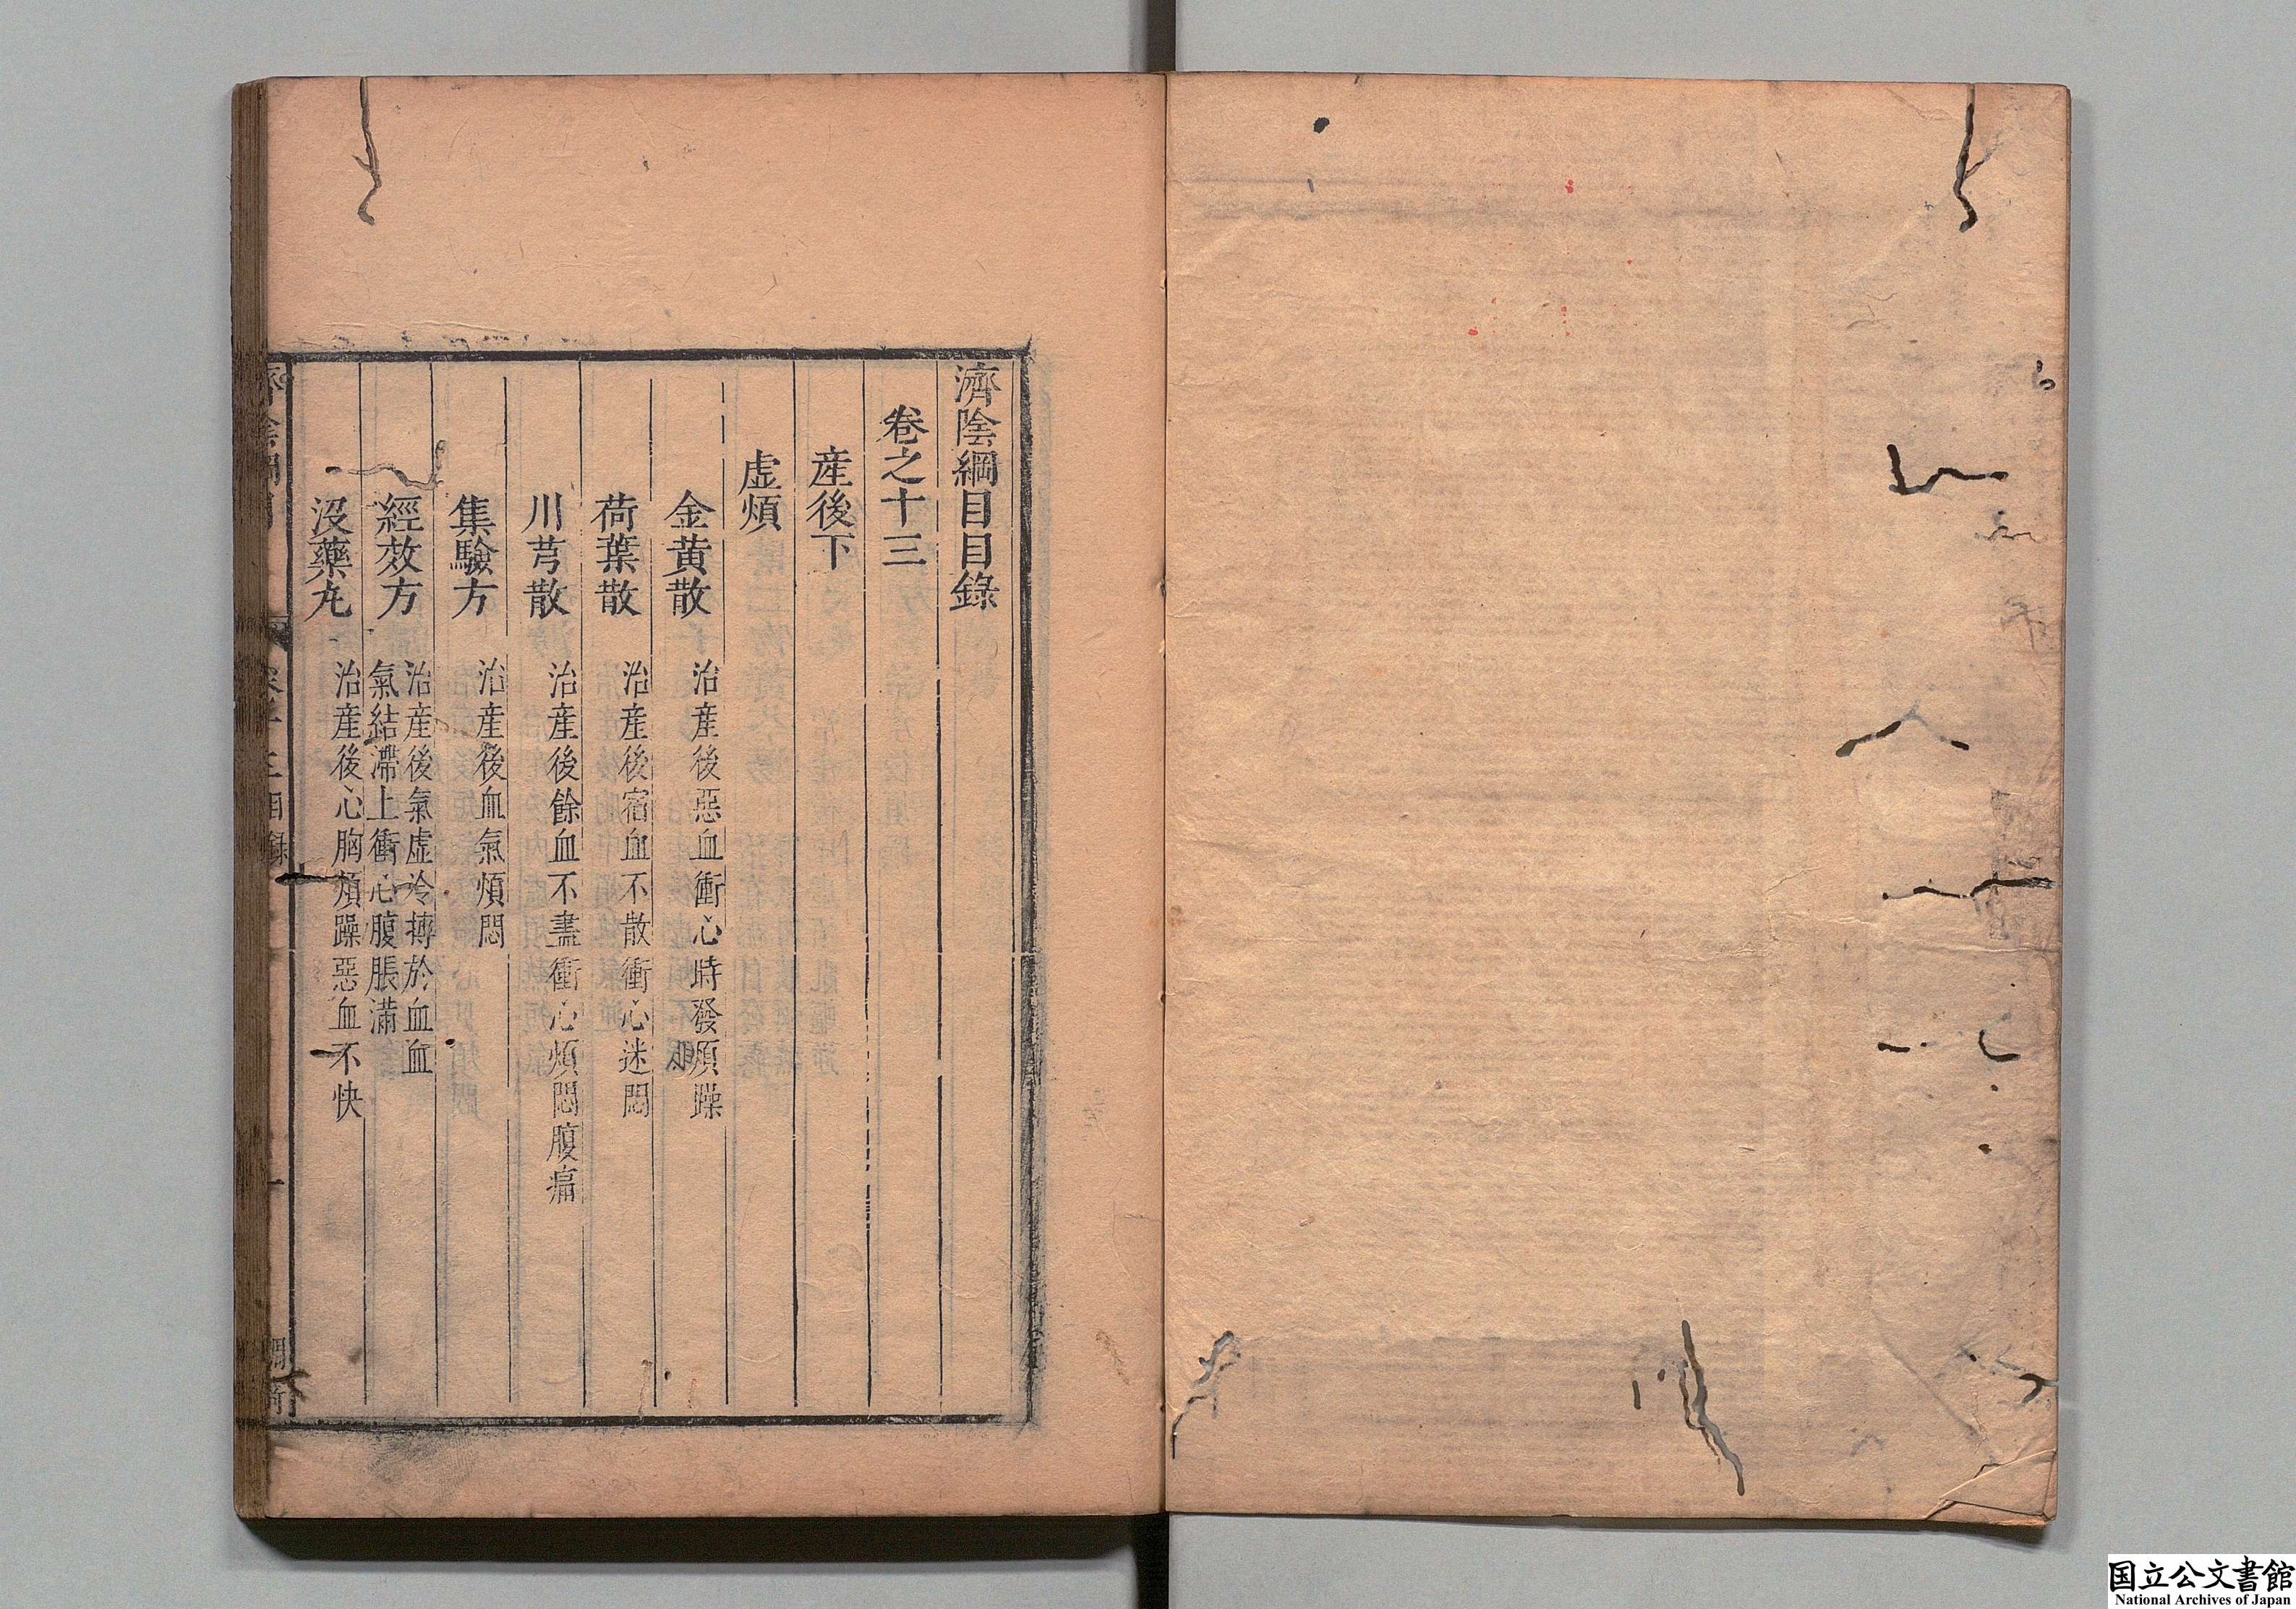 濟陰綱目目錄
卷之十三
產後下
虛煩
金黃散 治產後惡血衝心時發煩躁
荷葉散 治產後宿血不散衝心迷悶
川芎散 治產後餘血不盡衝心煩悶腹痛
集驗方 治產後血氣煩悶
經效方 治產後氣虛冷搏於血血
氣結滯上衝心腹脹滿
沒藥丸 治產後心胸煩躁惡血不快
国立公文書館
National Archives of Japan